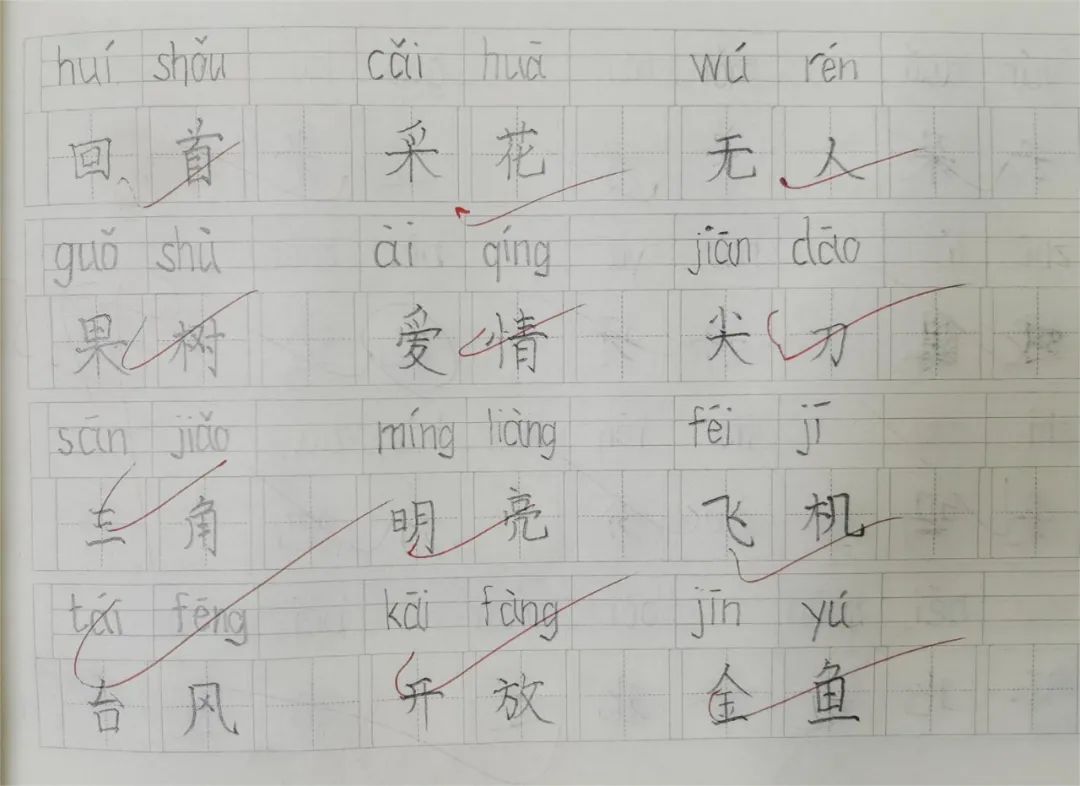 huí shǒu cǎi huā wú rén
回首 采花 无人
guǒ shù ài qíng jiān dāo
果树 爱情 尖刀
sān jiǎo míng liàng fēi jī
三角 明亮 飞机
tái fēng kāi fàng jīn yú
台风 开放 金鱼